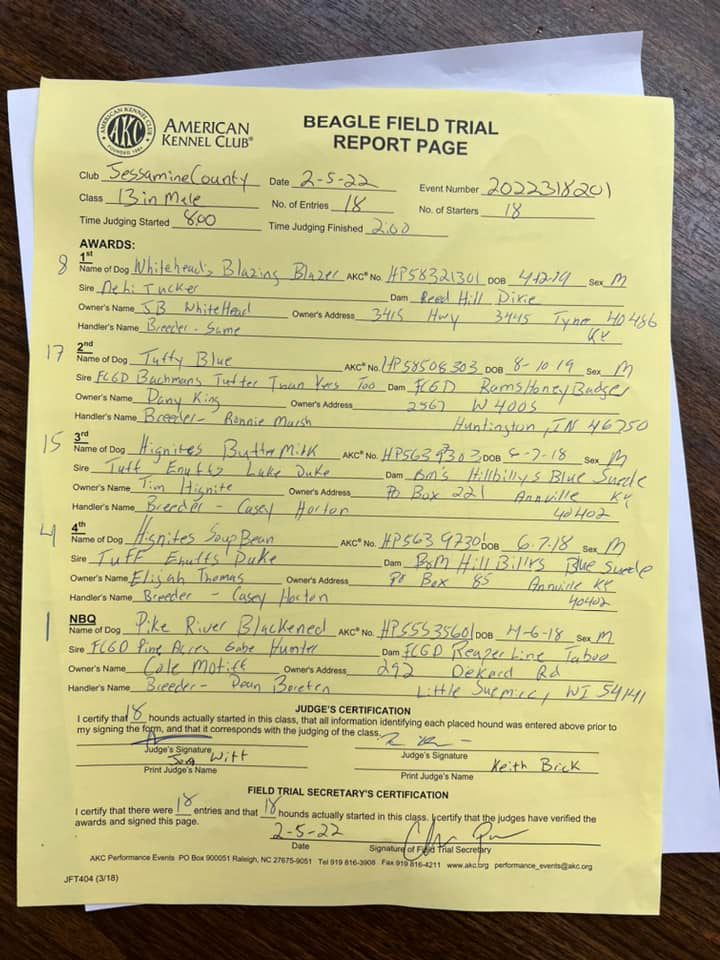 AMERICAN KENNEL CLUB FOUNDED 1884
AKC
AMERICAN KENNEL CLUB®
BEAGLE FIELD TRIAL
REPORT PAGE
Club Jessamine County Date 2-5-22 Event Number 2022318201
Class 13 in Male No. of Entries 18 No. of Starters 18
Time Judging Started 8:00 Time Judging Finished 2:00
AWARDS:
8 1st
Name of Dog Whitehead's Blazing Blazer AKC® No. HP58321301 DOB 4-12-19 Sex M
Sire Nehi Tucker Dam Reed Hill Dixie
Owner's Name JB WhiteHead Owner's Address 3415 Hwy 3445 Tyner 40486
KY
Handler's Name Breeder - Same
17 2nd
Name of Dog Tuffy Blue AKC® No. HP58508303 DOB 8-10-19 Sex M
Sire FCGD Bachmans Tuffer Than Yers Too Dam FCGD Rams Honey Badger
Owner's Name Dany King Owner's Address 2567 W 400S
Handler's Name Breeder - Ronnie Marsh Huntington, IN 46750
15 3rd
Name of Dog Hignites Butter Milk AKC® No. DOB 6-7-18 Sex M
Sire Tuff Enuffs Luke Duke Dam Hillbillys Blue Suede
Owner's Name Tim Hignite Owner's Address PO Box 221 Annville KY
Handler's Name Breeder - Casey Horton 40402
4 4th
Name of Dog Hignites Soup Bean AKC® No. HP56397301 DOB 6-7-18 Sex M
Sire Tuff Enuffs Duke Dam B&M Hill Billys Blue Suede
Owner's Name Elijah Thomas Owner's Address PO Box 85 Annville KY
Handler's Name Breeder - Casey Horton 40402
1 NBQ
Name of Dog Pike River Blackened AKC® No. HP55535601 DOB 4-6-18 Sex M
Sire FCGD Pine Acres Gabe Hunter Dam FCGD Line Taboo
Owner's Name Cole Motiff Owner's Address 292 Rd
Handler's Name Breeder - Dean Little WI 54141
JUDGE'S CERTIFICATION
I certify that 18 hounds actually started in this class, that all information identifying each placed hound was entered above prior to
my signing the form, and that it corresponds with the judging of the class.
Judge's Signature Judge's Signature
Witt Keith Brick
Print Judge's Name Print Judge's Name
FIELD TRIAL SECRETARY'S CERTIFICATION
I certify that there were 18 entries and that 18 hounds actually started in this class. I certify that the judges have verified the
awards and signed this page.
2-5-22
Date Signature of Field Trial Secretary
AKC Performance Events PO Box 900051 Raleigh, NC 27675-9051 Tel 919 816-3908 Fax 919 816-4211 www.akc.org performance_events@akc.org
JFT404 (3/18)